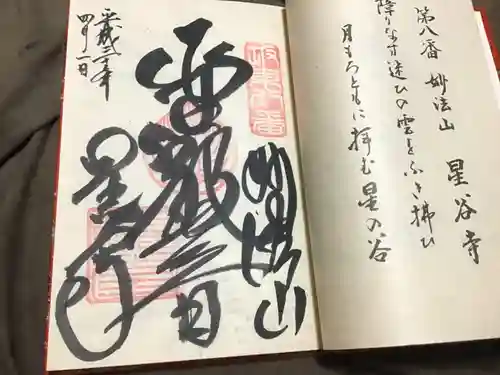 第八番 妙法山 星谷寺
障りなす迷ひの雲をふき拂ひ
月もろともに拝む星の谷
坂東八番
妙法山
聖観音
星谷寺
平成三十年
四月一日